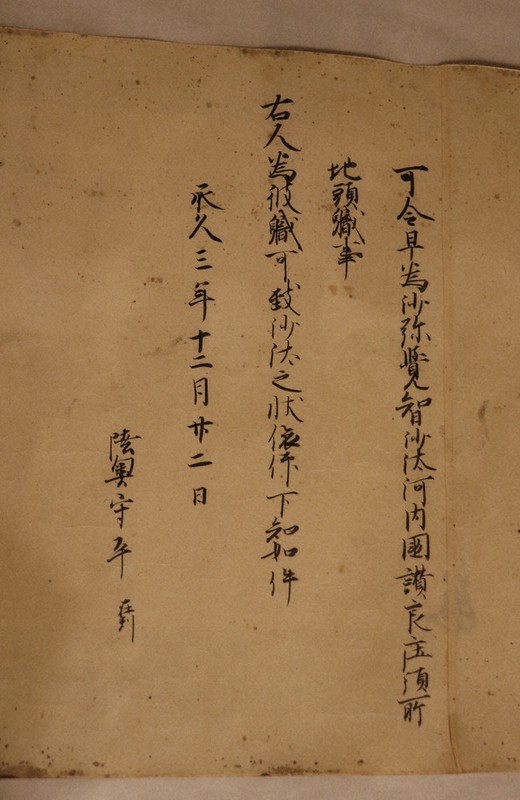 可令早為沙弥覺智沙汰河内國讃良庄須所
地頭職事
右人為彼職可致沙汰之状依仰下知如件
承久三年十二月廿二日
陸奥守平 在判